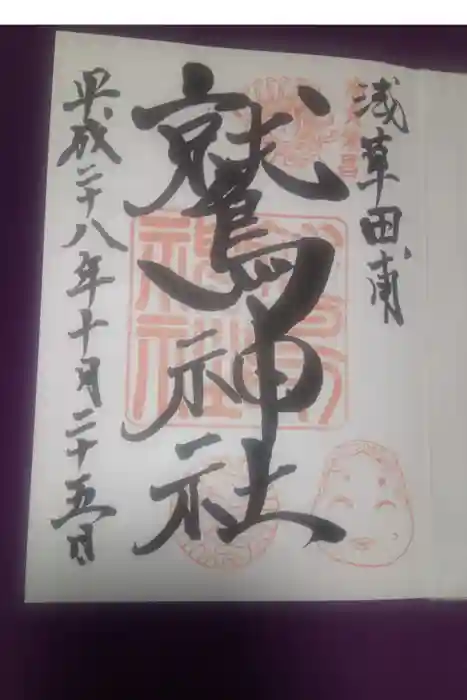 浅草田甫
鷲神社
平成二十八年十月二十五日
鷲神社